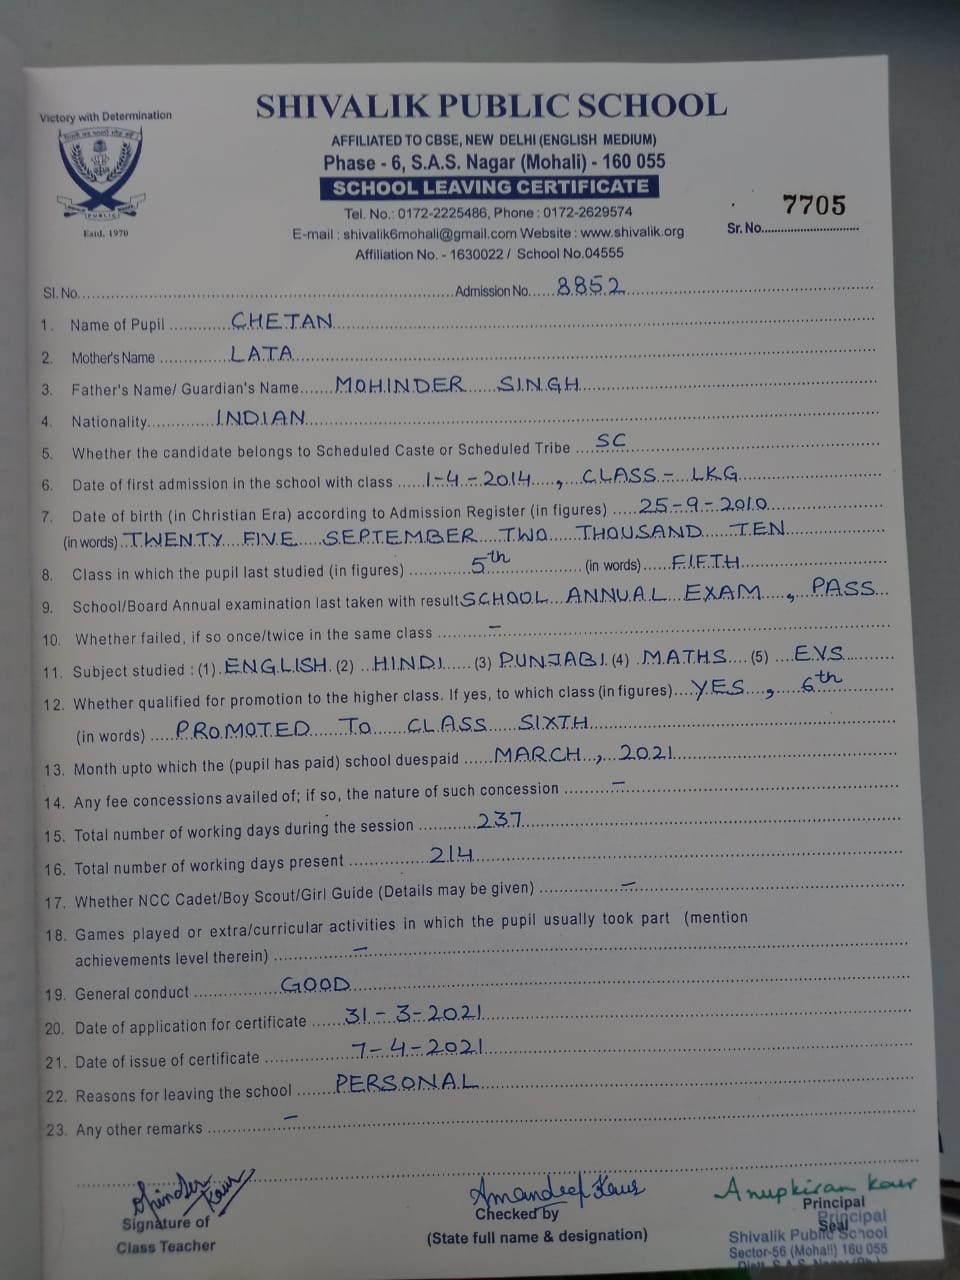 Victory with Determination
PUBLIC
Estd. 1970
SHIVALIK PUBLIC SCHOOL
AFFILIATED TO CBSE, NEW DELHI (ENGLISH MEDIUM)
Phase - 6, S.A.S. Nagar (Mohali) - 160 055
SCHOOL LEAVING CERTIFICATE
Tel. No.: 0172-2225486, Phone : 0172-2629574
E-mail : shivalik6mohali@gmail.com Website : www.shivalik.org
Affiliation No. - 1630022 / School No.04555
7705
Sr. No.
Sl. No. Admission No. 8852
1. Name of Pupil CHETAN
2. Mother's Name LATA
3. Father's Name/ Guardian's Name MOHINDER SINGH
4. Nationality INDIAN
5. Whether the candidate belongs to Scheduled Caste or Scheduled Tribe SC
6. Date of first admission in the school with class 1-4-2014, CLASS - LKG
7. Date of birth (in Christian Era) according to Admission Register (in figures) 25-9-2010
(in words) TWENTY FIVE SEPTEMBER TWO THOUSAND TEN
8. Class in which the pupil last studied (in figures) 5th (in words) FIFTH
9. School/Board Annual examination last taken with result SCHOOL ANNUAL EXAM, PASS
10. Whether failed, if so once/twice in the same class –
11. Subject studied : (1) ENGLISH (2) HINDI (3) PUNJABI (4) MATHS (5) EVS
12. Whether qualified for promotion to the higher class. If yes, to which class (in figures) YES, 6th
(in words) PROMOTED TO CLASS SIXTH
13. Month upto which the (pupil has paid) school duespaid MARCH, 2021
14. Any fee concessions availed of; if so, the nature of such concession –
15. Total number of working days during the session 237
16. Total number of working days present 214
17. Whether NCC Cadet/Boy Scout/Girl Guide (Details may be given) –
18. Games played or extra/curricular activities in which the pupil usually took part (mention
achievements level therein) –
19. General conduct GOOD
20. Date of application for certificate 31-3-2021
21. Date of issue of certificate 7-4-2021
22. Reasons for leaving the school PERSONAL
23. Any other remarks –
Kaur
Signature of
Class Teacher
Amandeep Kaur
Checked by
(State full name & designation)
Anupkiran Kaur
Principal
Seal
Principal
Shivalik Public School
Sector-56 (Mohali) 160 055